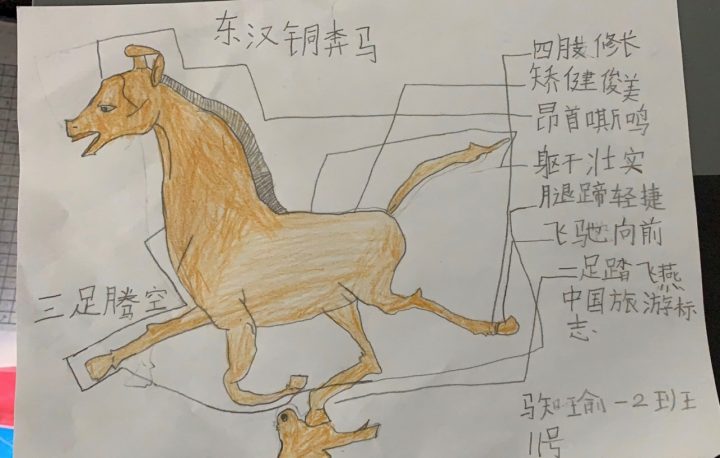 东汉铜奔马
四肢修长
矫健俊美
昂首嘶鸣
躯干壮实
腿蹄轻捷
飞驰向前
三足腾空
二足踏飞燕
中国旅游标
志
马知瑜一2班
11号